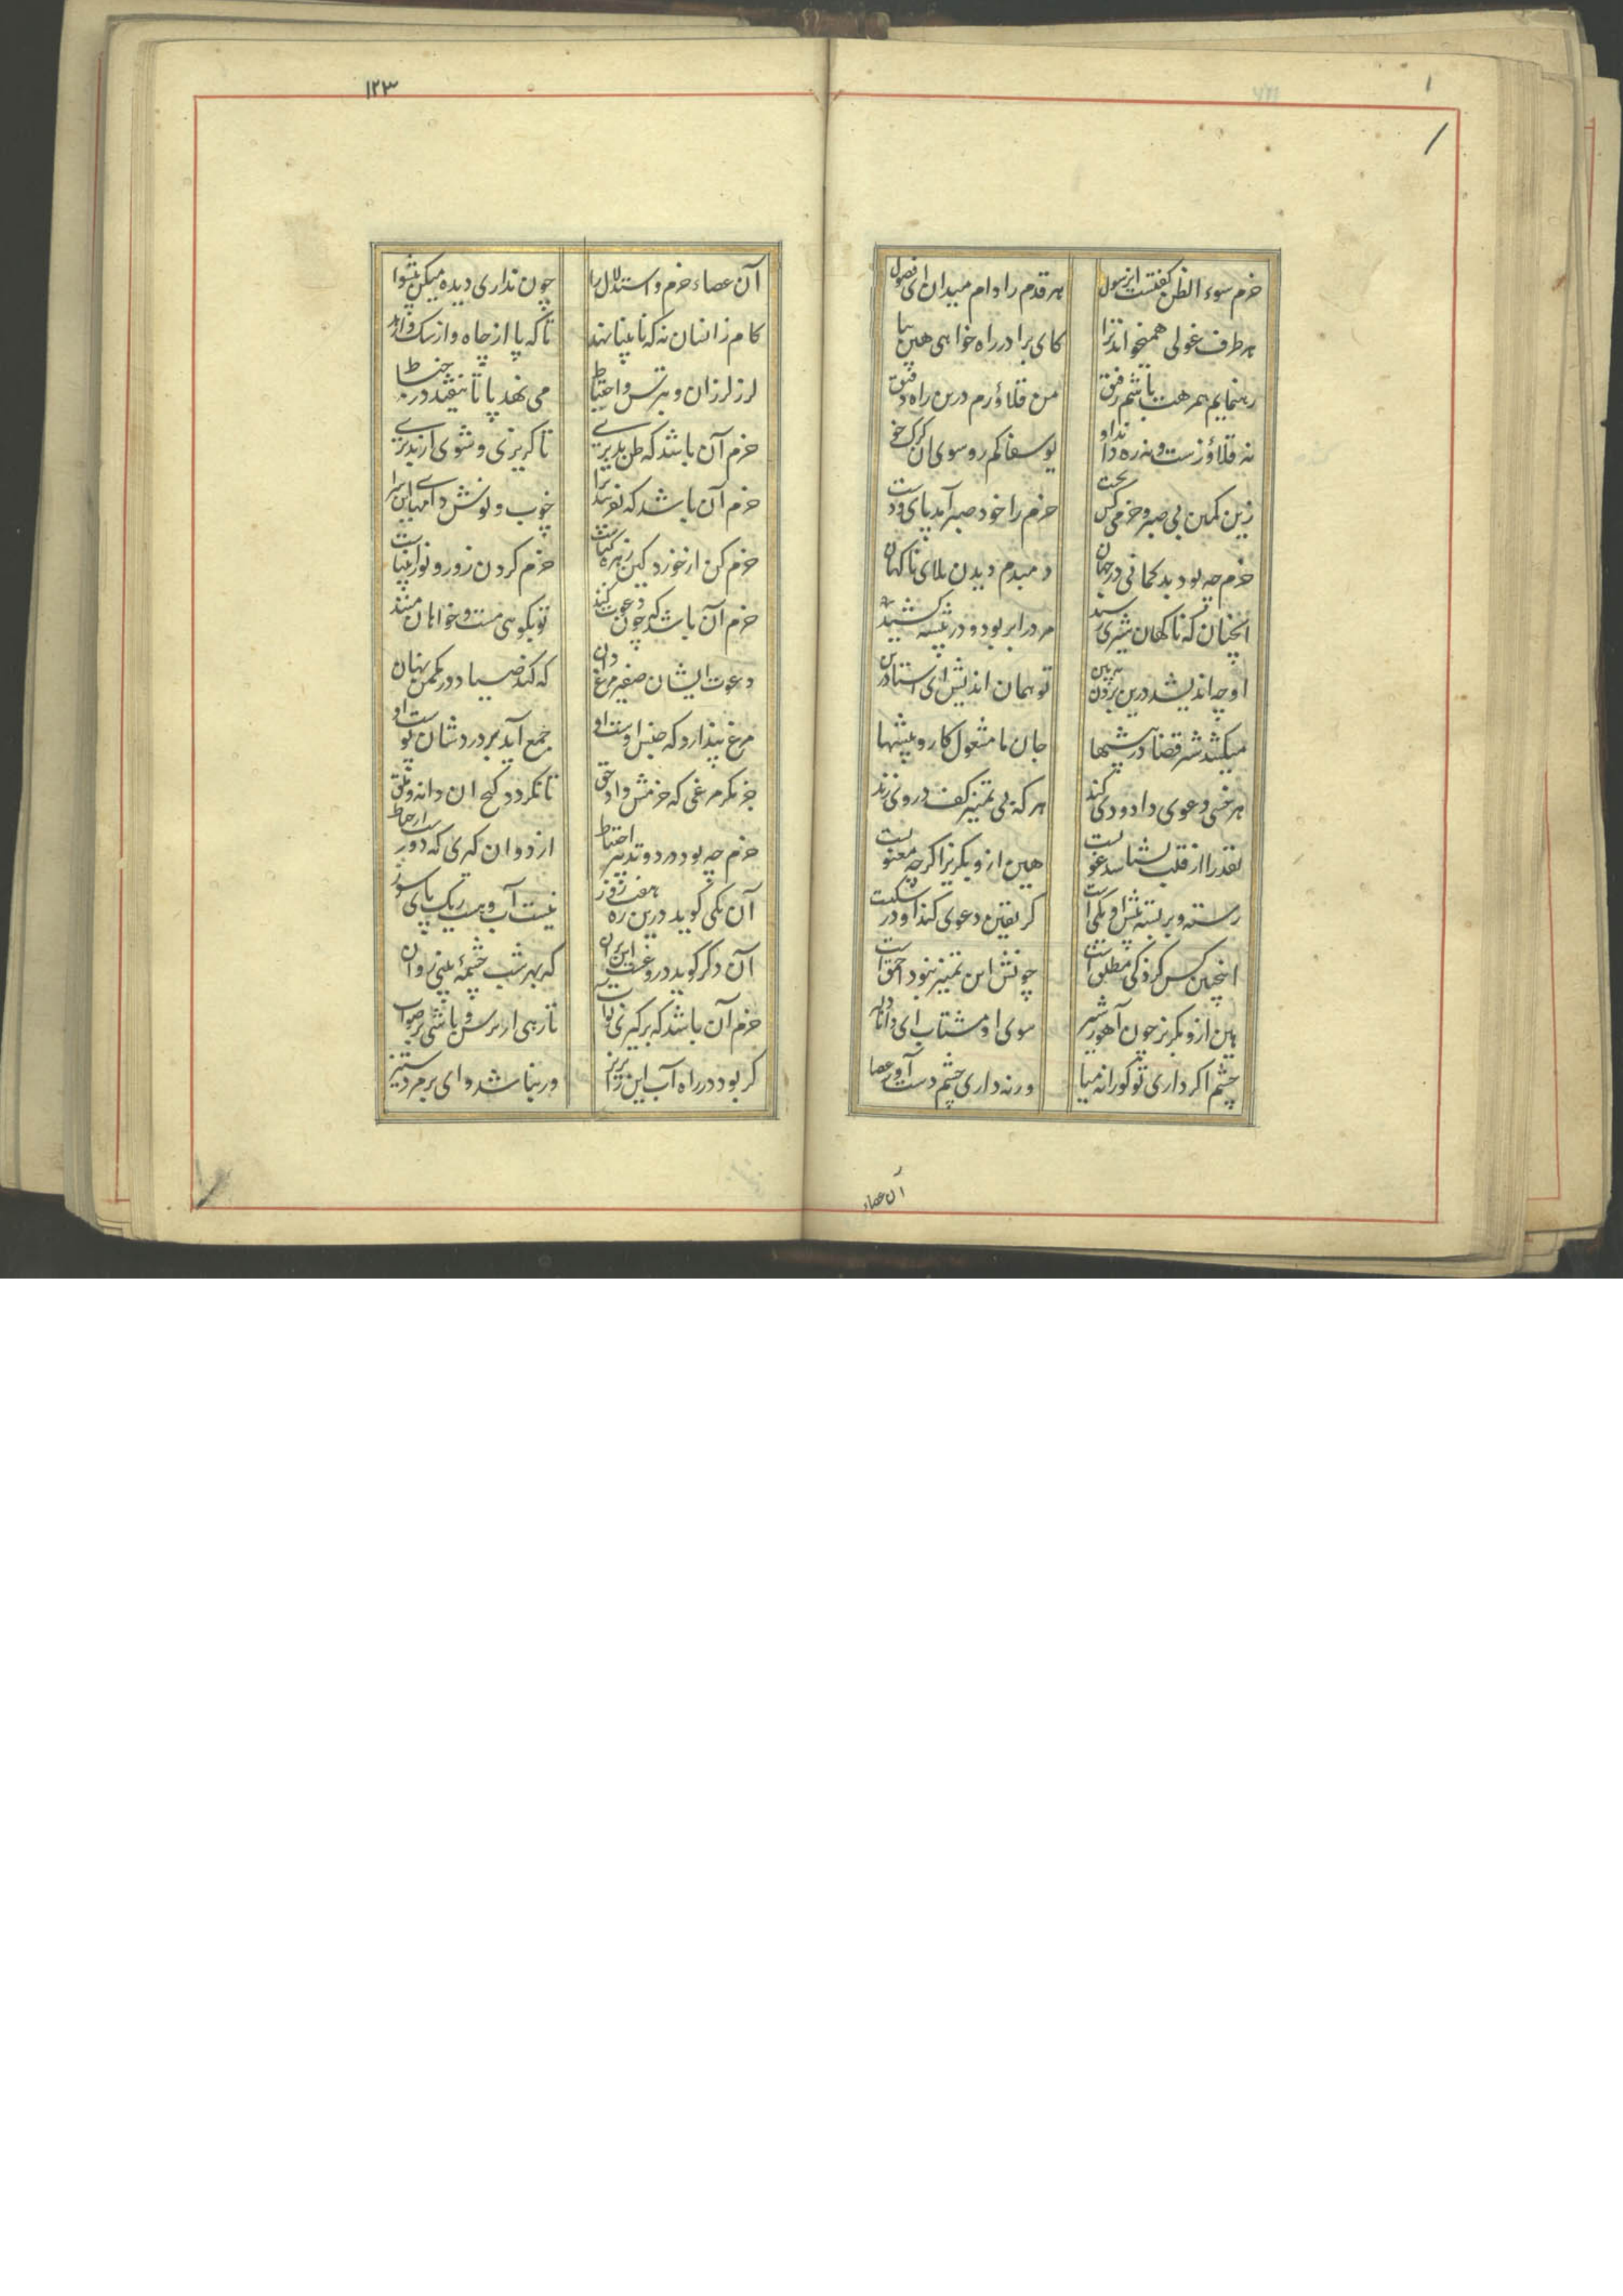 ۱۲۳
۱
حزم سوء الظن گفتست از رسول هر قدم را دام میدان ای فضول
هر طرف غولی همیخواند ترا کای برادر راه خواهی هین بیا
رهنمایم همرهت باشم رفیق من قلاؤزم درین راه دقیق
نه قلاؤزست و نه ره داند او یوسفا کم رو سوی آن کرک خو
حزم را خود صبر آمد پای و دست
حزم چه بود بدکمانی در جهان دمبدم دیدن بلای ناکهان
آنچنان که ناکهان شیری رسید مرد را بربود و در بیشه کشید
او چه اندیشد درین بردن ببین تو همان اندیش ای استاد دین
میکشد شیر قضا در بیشها جان ما مشغول کار و پیشها
هر خسی دعوی داودی کند هر که بی تمییز کف در وی زند
هین ازو بکریز اکرچه معنویست
رسته و بر بسته پیش او یکی است کر یقین دعوی کند او در شکیست
اینچنین کس کر ذکی مطلق است چونش این تمییز نبود احمق است
هین ازو بکریز چون آهو ز شیر سوی او مشتاب ای دانا دلیر
چشم اکر داری تو کورانه میا ور نداری چشم دست آور عصا
آن عصاء
آن عصاء حزم و استدلال را چون نداری دیده میکن پیشوا
کام زانسان نه که نابینا نهد تا که پا از چاه و از سک وارهد
لرز لرزان و بترس و احتیاط می نهد پا تا نیفتد در خباط
حزم آن باشد که ظن بد بری تا کریزی و شوی از بد بری
حزم آن باشد که نفریبد ترا چرب و نوش دامهای این سرا
حزم کن از خورد کین زهره کیاست حزم کردن زور و نور انبیاست
حزم آن باشد که چون دعوت کند تو نکویی مست و خواهان منند
دعوت ایشان صفیر مرغ دان که کند صیاد در مکمن نهان
جز مکر مرغی که حزمش داد حق تا نکردد کیج آن دانه و ملق
حزم چه بود در دو تدبیر احتیاط از دو آن کیری که دورست از خباط
آن یکی کوید درین ره هفت روز نیست آب و هست ریک پای سوز
آن دکر کوید دروغست این بران که بهر شب چشمهٔ بینی روان
حزم آن باشد که برکیری تو آب تا رهی از ترس و باشی بر صواب
کر بود در راه آب این را بریز ور نباشد وای بر مرد ستیز